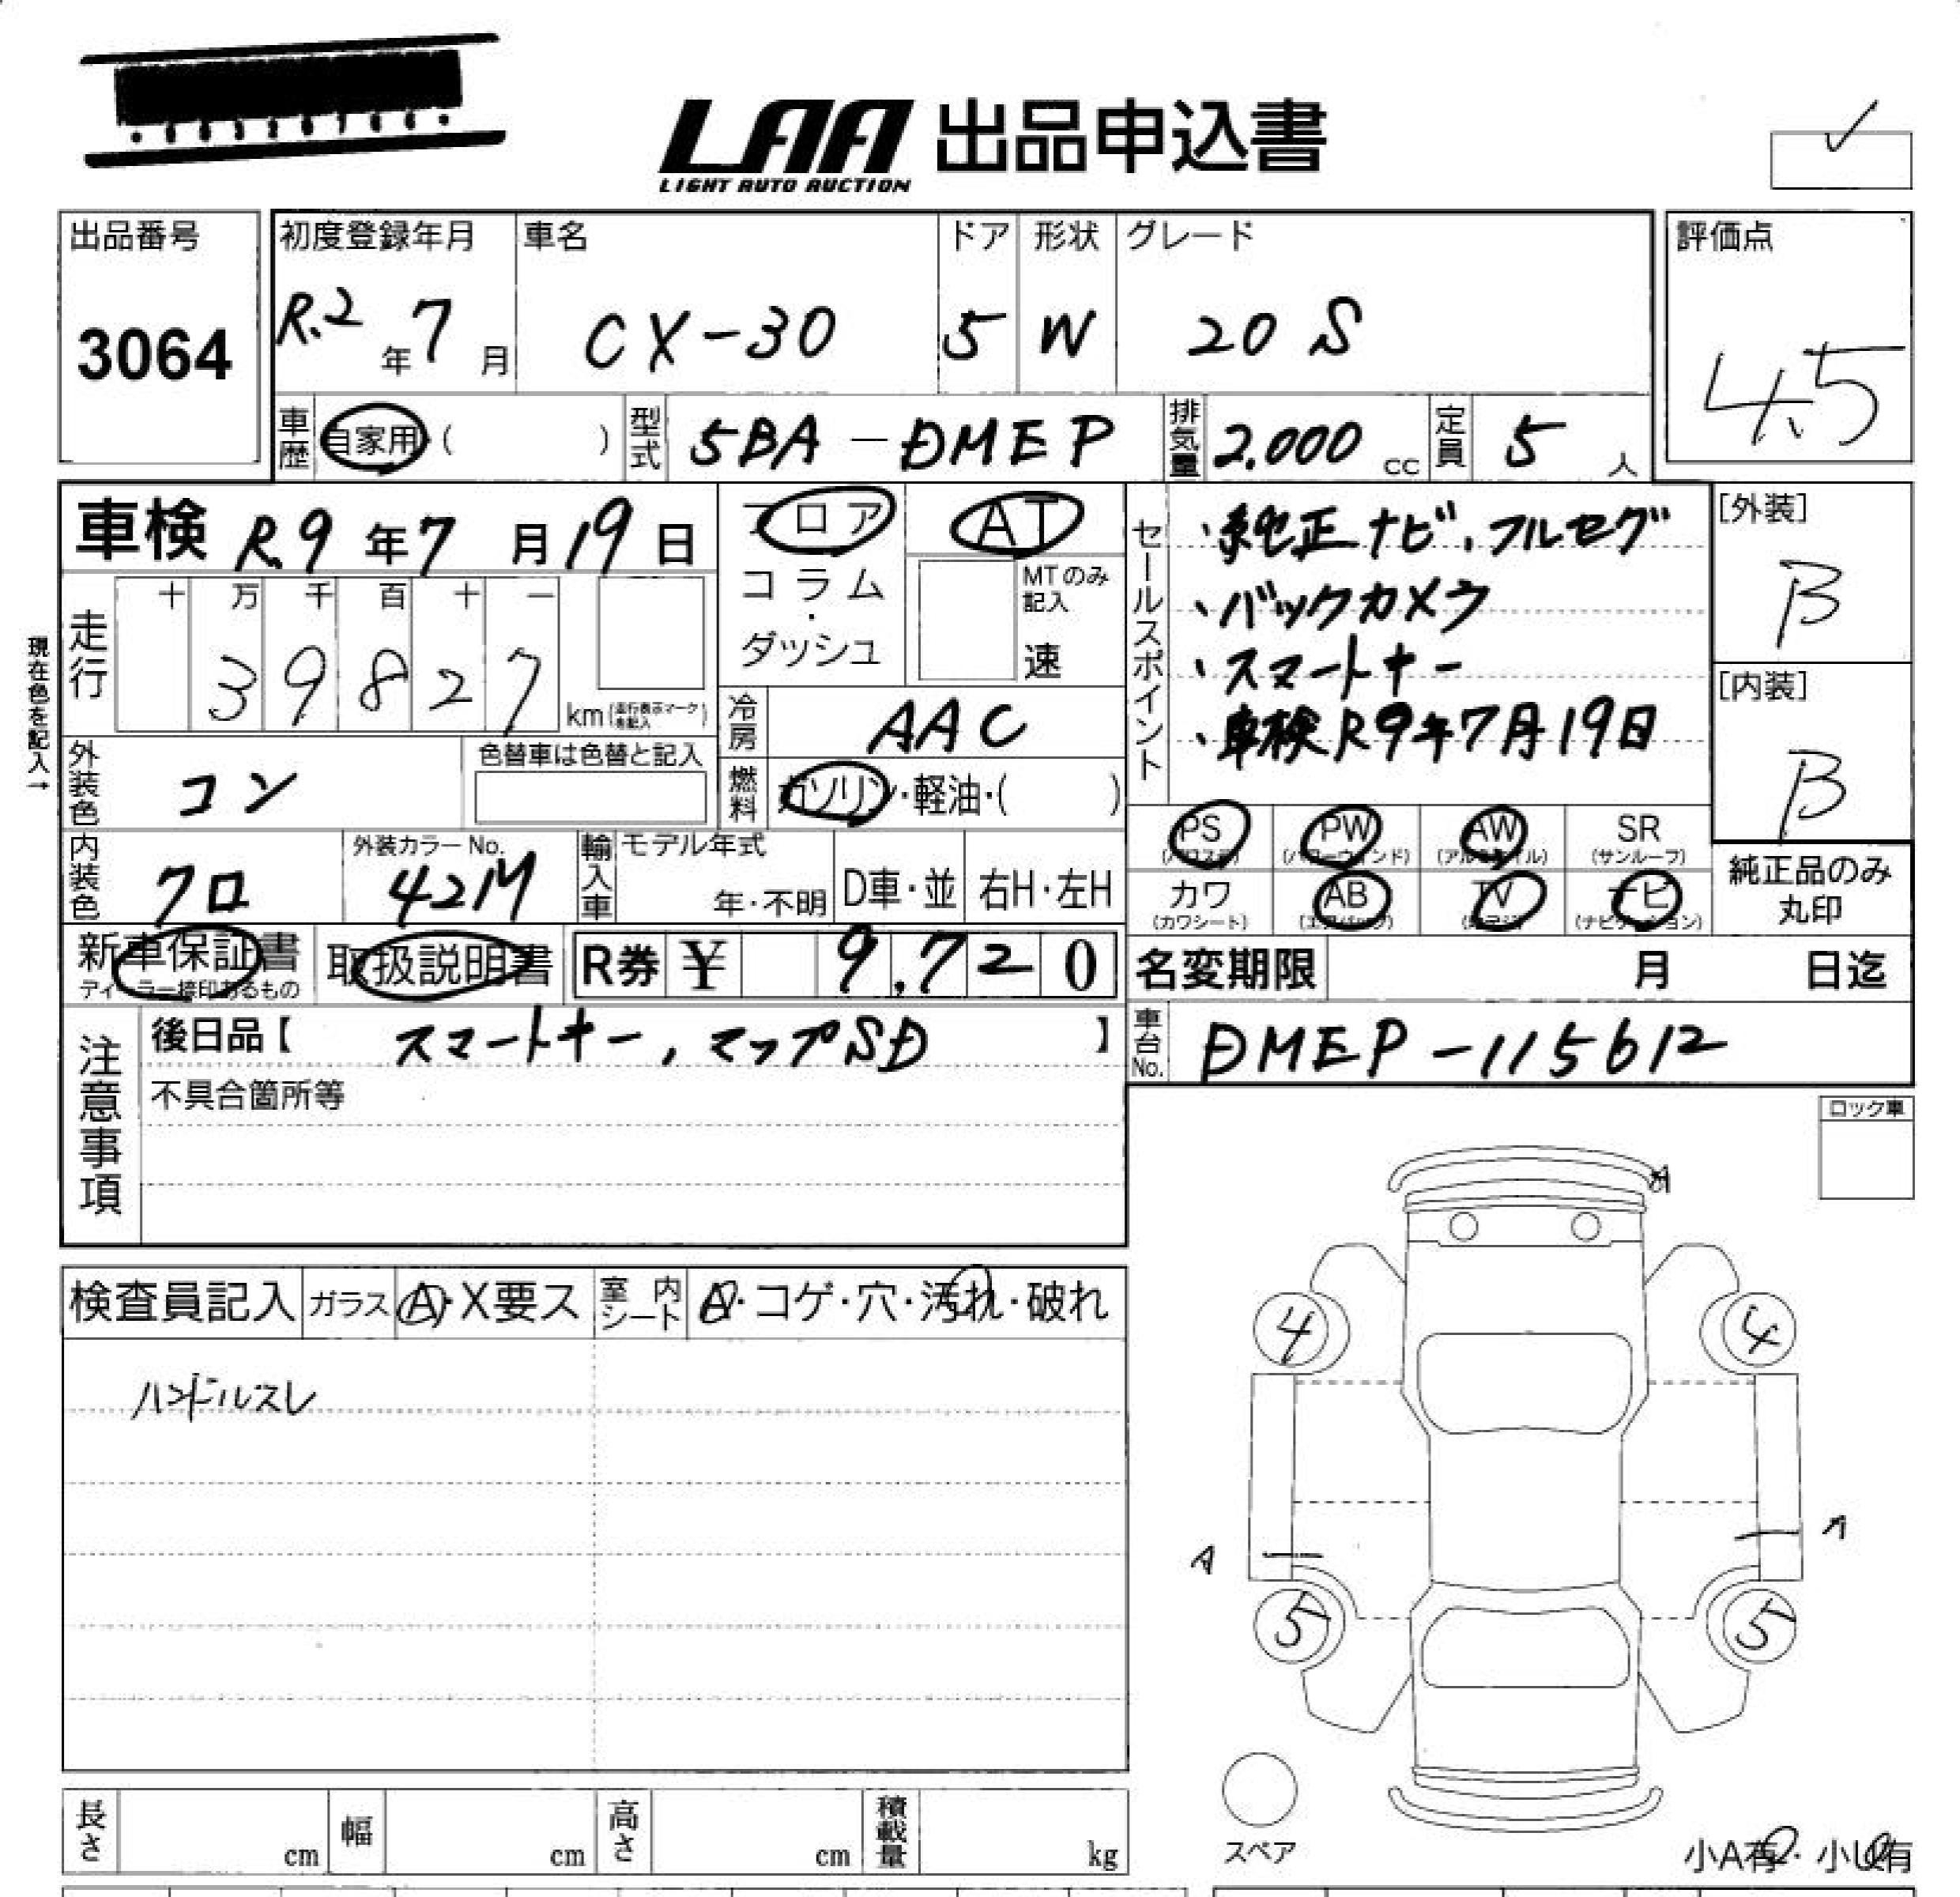 LAA 出品申込書
LIGHT AUTO AUCTION
出品番号
3064
初度登録年月 車名 ドア 形状 グレード
R.2年7月 CX-30 5 W 20 S
評価点
4.5
車歴 自家用 ( ) 型式 5BA-DMEP 排気量 2.000 cc 定員 5 人
車検 R.9年7月19日
フロア
コラム・ダッシュ
AT
MTのみ記入
速
セールスポイント
・純正ナビ、フルセグ
・バックカメラ
・スマートキー
・車検R9年7月19日
[外装]
B
[内装]
B
現在色を記入→
走行 十 万 千 百 十 一
39827 km (走行表示マーク未記入)
冷房 AAC
外装色 コン 色替車は色替と記入
燃料 ガソリン・軽油・( )
内装色 クロ 外装カラーNo. 42M
輸入車 モデル年式 年・不明 D車・並 右H・左H
PS (パワステ) PW (パワーウィンド) AW (アルミホイル) SR (サンルーフ)
カワ (カワシート) AB (エアバッグ) TV ナビ (ナビゲーション)
純正品のみ丸印
新車保証書 ディーラー捺印あるもの
取扱説明書
R券 ¥ 9,720
名変期限 月 日迄
注意事項
後日品【 スマートキー、マップSD 】
不具合箇所等
車台No. DMEP-115612
ロック車
検査員記入 ガラス A・X要ス 室内シート A・コゲ・穴・汚れ・破れ
ハンドルスレ
A
4 4
A A
5 5
スペア
小A有・小U有
長さ cm 幅 cm 高さ cm 積載量 kg